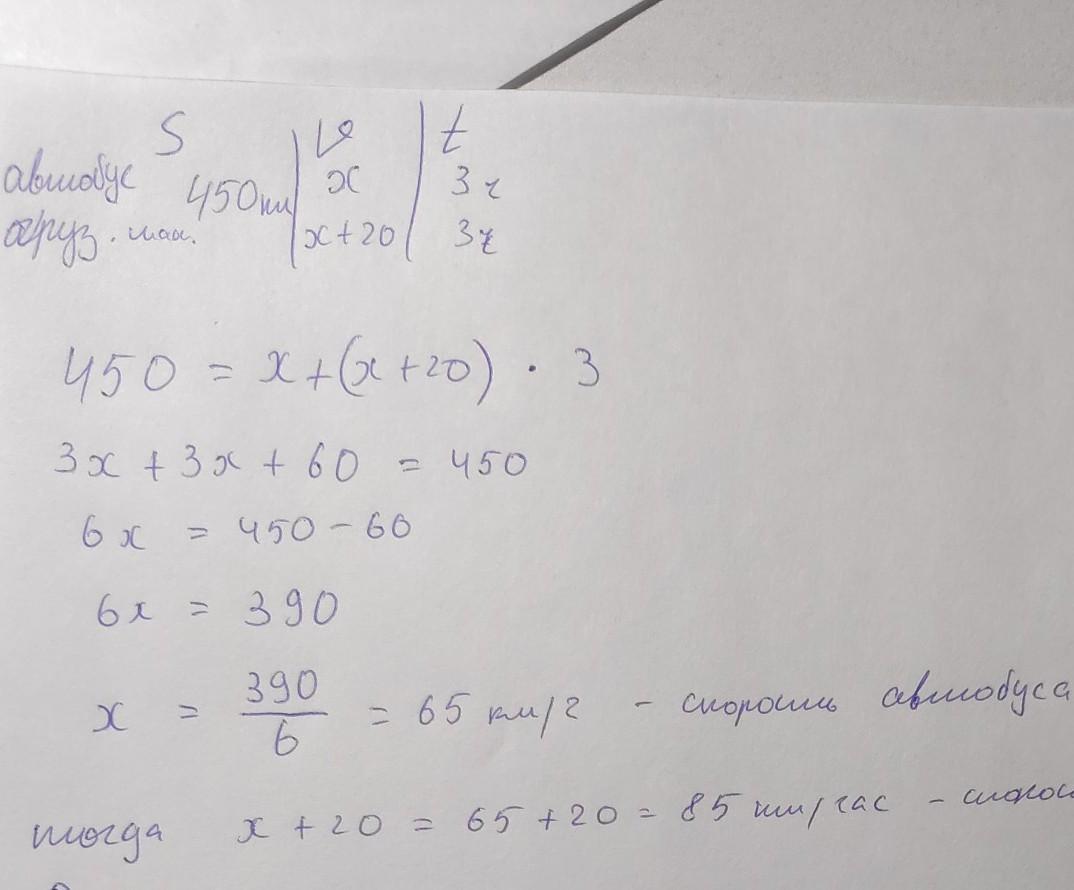 S | V | t
автобус 450 км | x | 3 ч
груз. маш. | x+20 | 3 ч
450 = x+(x+20) · 3
3x + 3x + 60 = 450
6x = 450 - 60
6x = 390
x = 390/6 = 65 км/г - скорость автобуса
тогда x + 20 = 65 + 20 = 85 км/час -